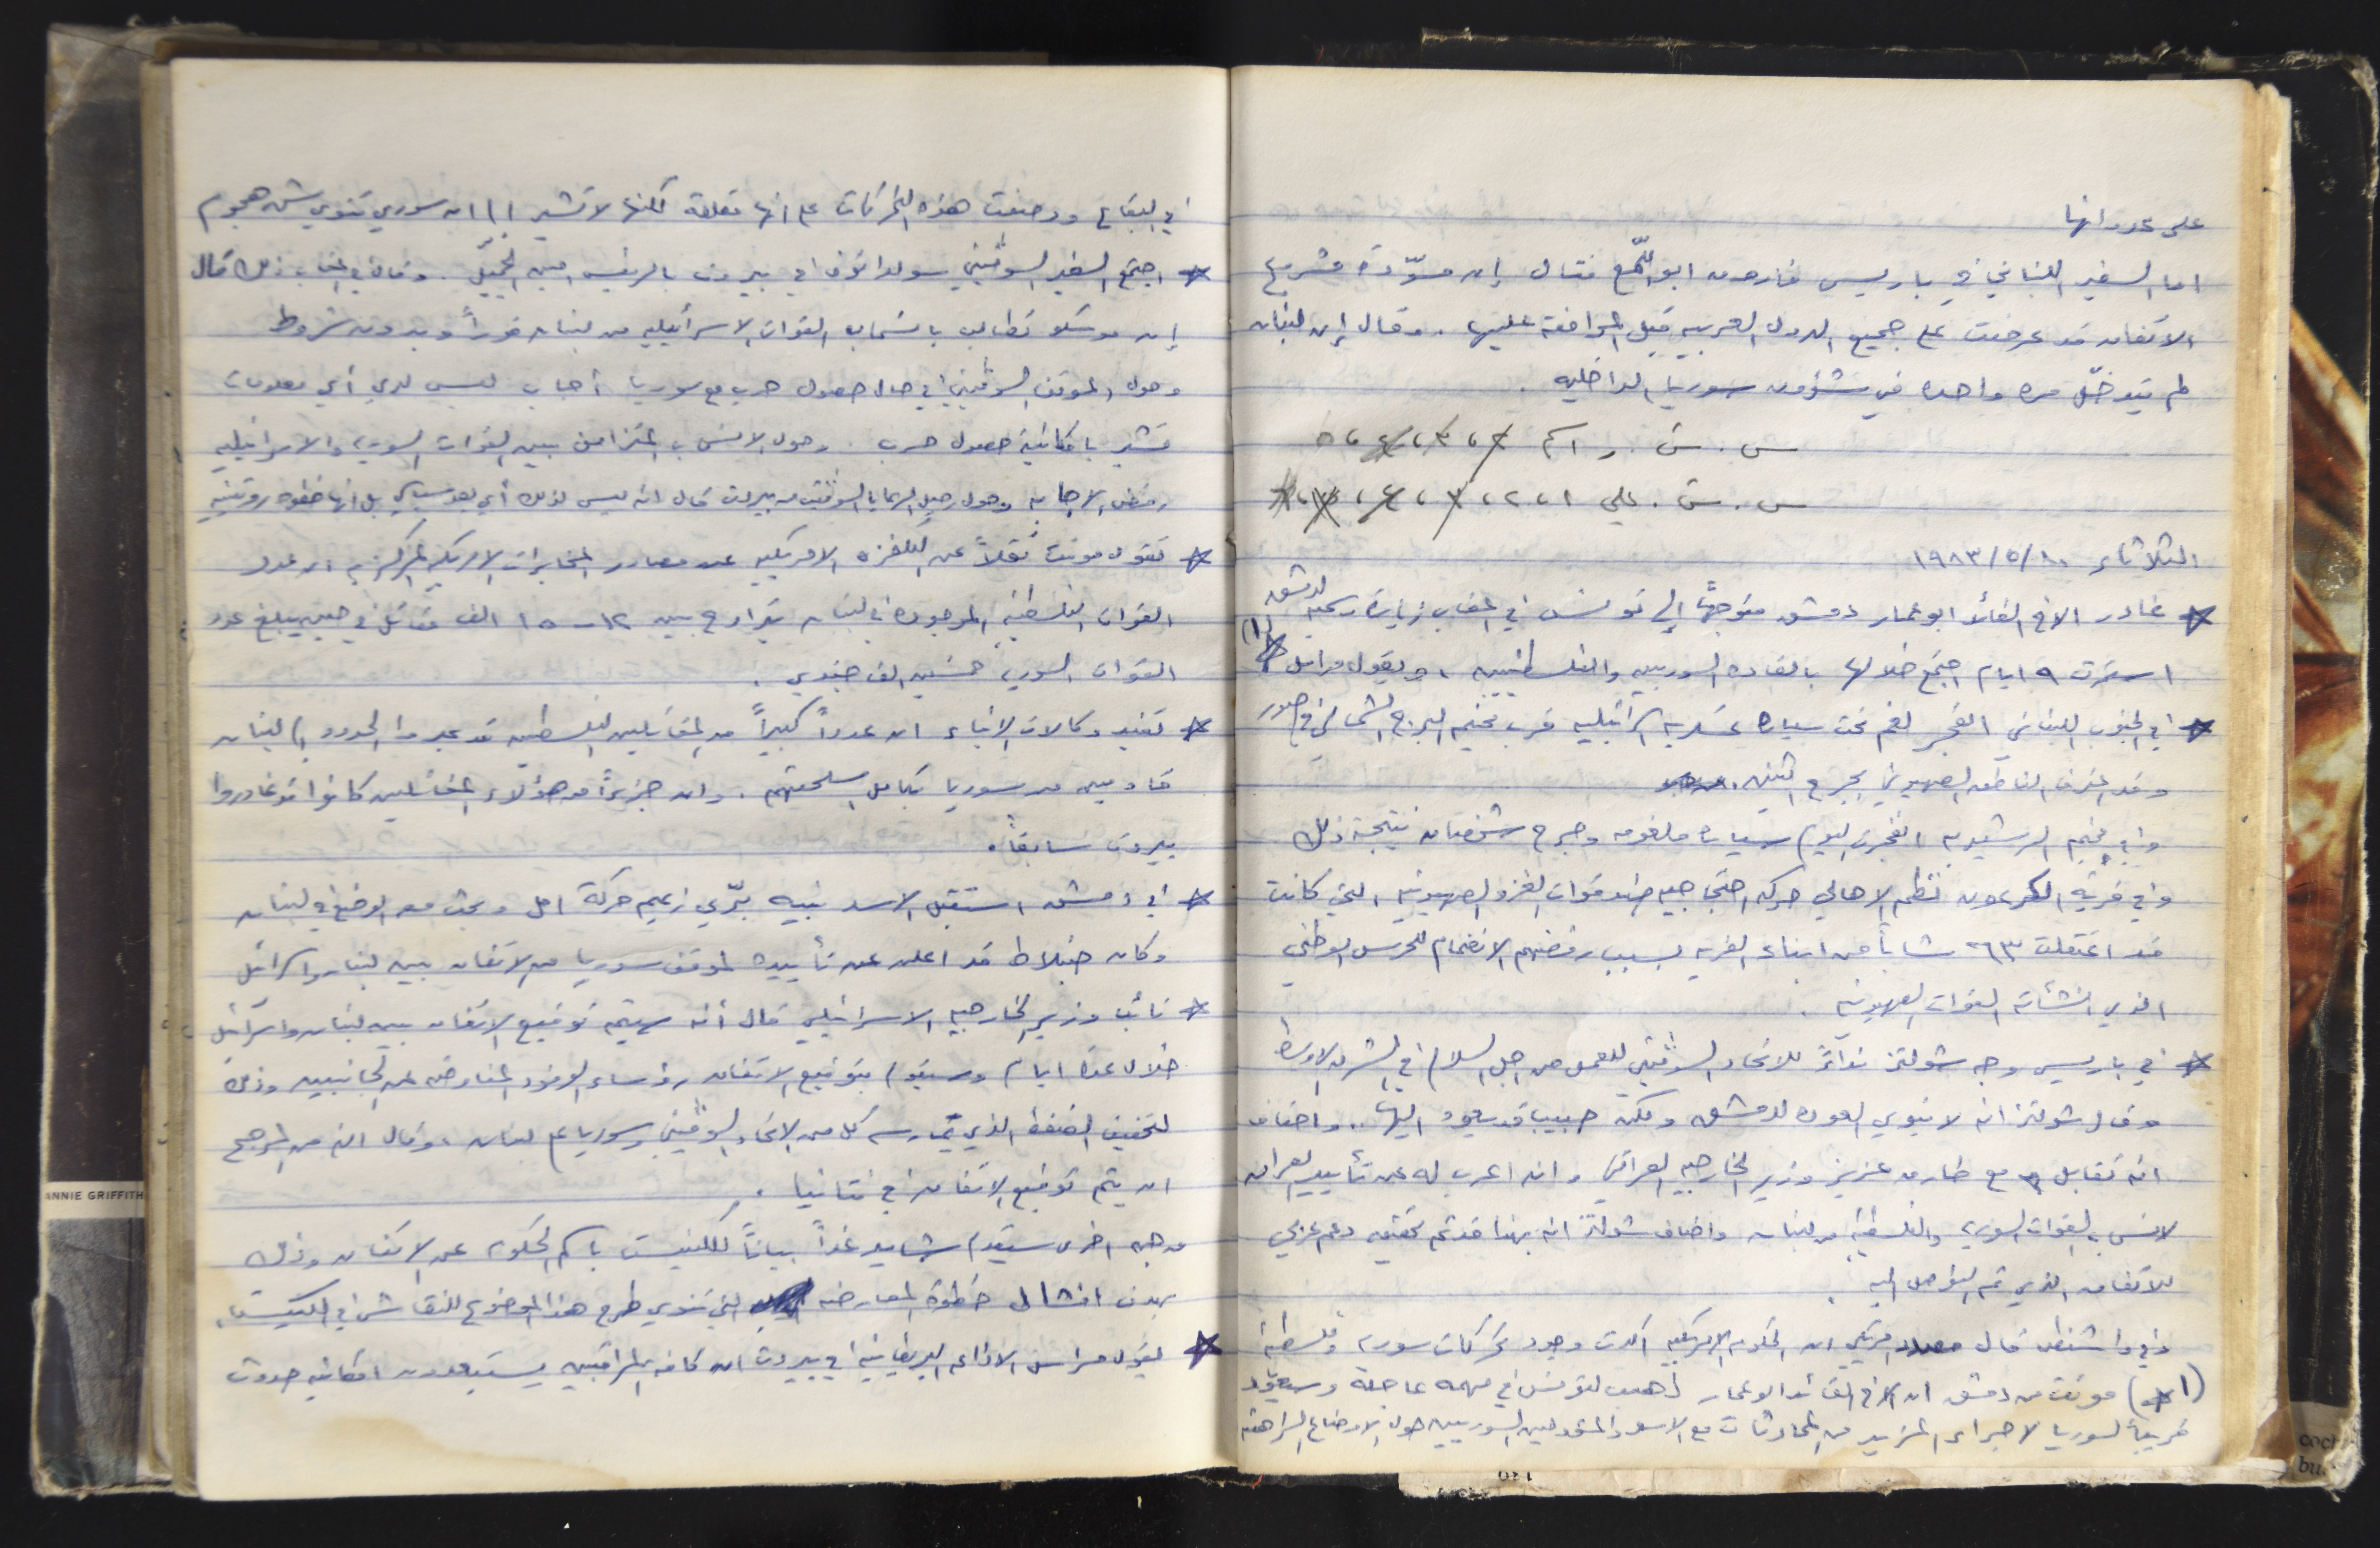 على عدوانها
اما السفير اللبناني في باريس فاروق ابو اللّمع فقال إن مسوّدة مشروع
الاتفاق قد عرضت على جميع الدول العربيه قبل الموافقة عليها . وقال إن لبنان
لم يتدخّل مره واحده في شؤون سوريا الداخليه .
س . ش . را كم ٢ ، ٣ ، ٤ ، ٥
س . ش . علي ١ ، ٢ ، ٣ ، ٤ ،
الثلاثاء ١٩٨٣/٥/١٠
* غادر الاخ القائد ابو عمار دمشق متوجهًا إلى تونس في اعقاب زيارة رسميه لدمشق
استمرت ٩ ايام اجتمع خلالها بالقاده السوريين والفلسطينيين ، ويقول مراسل (١*)
* في الجنوب اللبناني انفجر لغم تحت سياره عسكريه اسرائيليه قرب مخيم البرج الشمالي في صور
وقد اعترف الناطق الصهيوني بجرح اثنين .
وفي مخيم الرشيديه انفجرت اليوم سياره ملغومه وجرح شخصان نتيجة ذلك
وفي قرية نظم الاهالي حركه احتجاجيه ضد قوات الغزو الصهيونيه التي كانت
قد اعتقلت ٦٣ شاباً من ابناء القريه بسبب رفضهم الانضمام للحرس الوطني
الذي انشأته القوات الصهيونيه .
* في باريس وجه شولتز نداءً للاتحاد السوڤيتي للعمل من اجل السلام في الشرق الاوسط
وقال شولتز انه لا ينوي العوده لدمشق ولكن حبيب قد يعود اليها .. واضاف
انه تقابل مع طارق عزيز وزير الخارجيه العراقي وانه اعرب له عن تأييد العراق
لانسحاب القوات السوريه والفلسطينيه من لبنان واضاف شولتز انه بهذا قد تم تحقيق دعم عربي
للاتفاق الذي تم التوصل اليه .
وفي واشنطن قال مصدر امريكي ان الحكومه الامريكيه اكدت وجود تحركات سوريه وفلسطينيه
(١*) مونت من دمشق ان الاخ القائد ابو عمار ذاهب لتونس في مهمه عاجلة وسيعود
قريباً لسوريا لاجراء المزيد من المحادثات مع الاسد والمسؤولين السوريين حول الاوضاع الراهنه
في البقاع ووصفت هذه التحركات على انها مقلقة لكنها لا تشير الى ان سوريا تنوي شن هجوم
* اجتمع السفير السوڤييتي سولداتوف في بيروت بالرئيس امين الجميّل . وفي اعقاب ذلك قال
إن موسكو تطالب بانسحاب القوات الاسرائيليه من لبنان فوراً وبدون شروط
وحول الموقف السوڤييتي في حال حصول حرب مع سوريا أجاب ليس لدي أي معلومات
تشير بامكانية حصول حرب . وحول الانسحاب المتزامن بين القوات السوريه والاسرائيليه
رفض الاجابه وحول رحيل الرعايا السوڤيت من بيروت قال انه ليس لذلك أي بعد سياسي بل انها خطوه روتينيه
* تقول مونت نقلاً عن التلفزه الامريكيه عن مصادر المخابرات الامريكيه المركزيه ان عدد
القوات الفلسطينيه الموجوده في لبنان يتراوح بين ١٢ - ١٥ الف مقاتل في حين يبلغ عدد
القوات السوريه خمسين الف جندي .
* تفيد وكالات الانباء ان عدداً كبيراً من المقاتلين الفلسطينيين قد عبروا الحدود الى لبنان
قادمين من سوريا بكامل اسلحتهم . وان جزءاً من هؤلاء المقاتلين كانوا قد غادروا
بيروت سابقاً .
* في دمشق استقبل الاسد نبيه برّي زعيم حركة امل وبحث معه الوضع في لبنان
وكان جنبلاط قد اعلن عن تأييده لموقف سوريا من الاتفاق بين لبنان واسرائيل
* نائب وزير الخارجيه الاسرائيلي قال أنه سيتم توقيع الاتفاق بين لبنان واسرائيل
خلال عدة ايام وسيقوم بتوقيع الاتفاق رؤساء الوفود المفاوضه عن الجانبين وذلك
لتخفيف الضغط الذي يمارسه كل من الاتحاد السوڤييتي وسوريا على لبنان ، وقال انه من المرجح
ان يتم توقيع الاتفاق في نتانيا .
من جهه اخرى سيقدم شامير غداً بياناً للكنيست باسم الحكومه عن الاتفاق وذلك
بهدف افشال خطوة المعارضه التي تنوي طرح هذا الموضوع للنقاش في الكنيست .
* يقول مراسل الاذاعه البريطانيه في بيروت ان كافه المراقبين يستبعدون امكانيه حدوث
ANNIE GRIFFITH